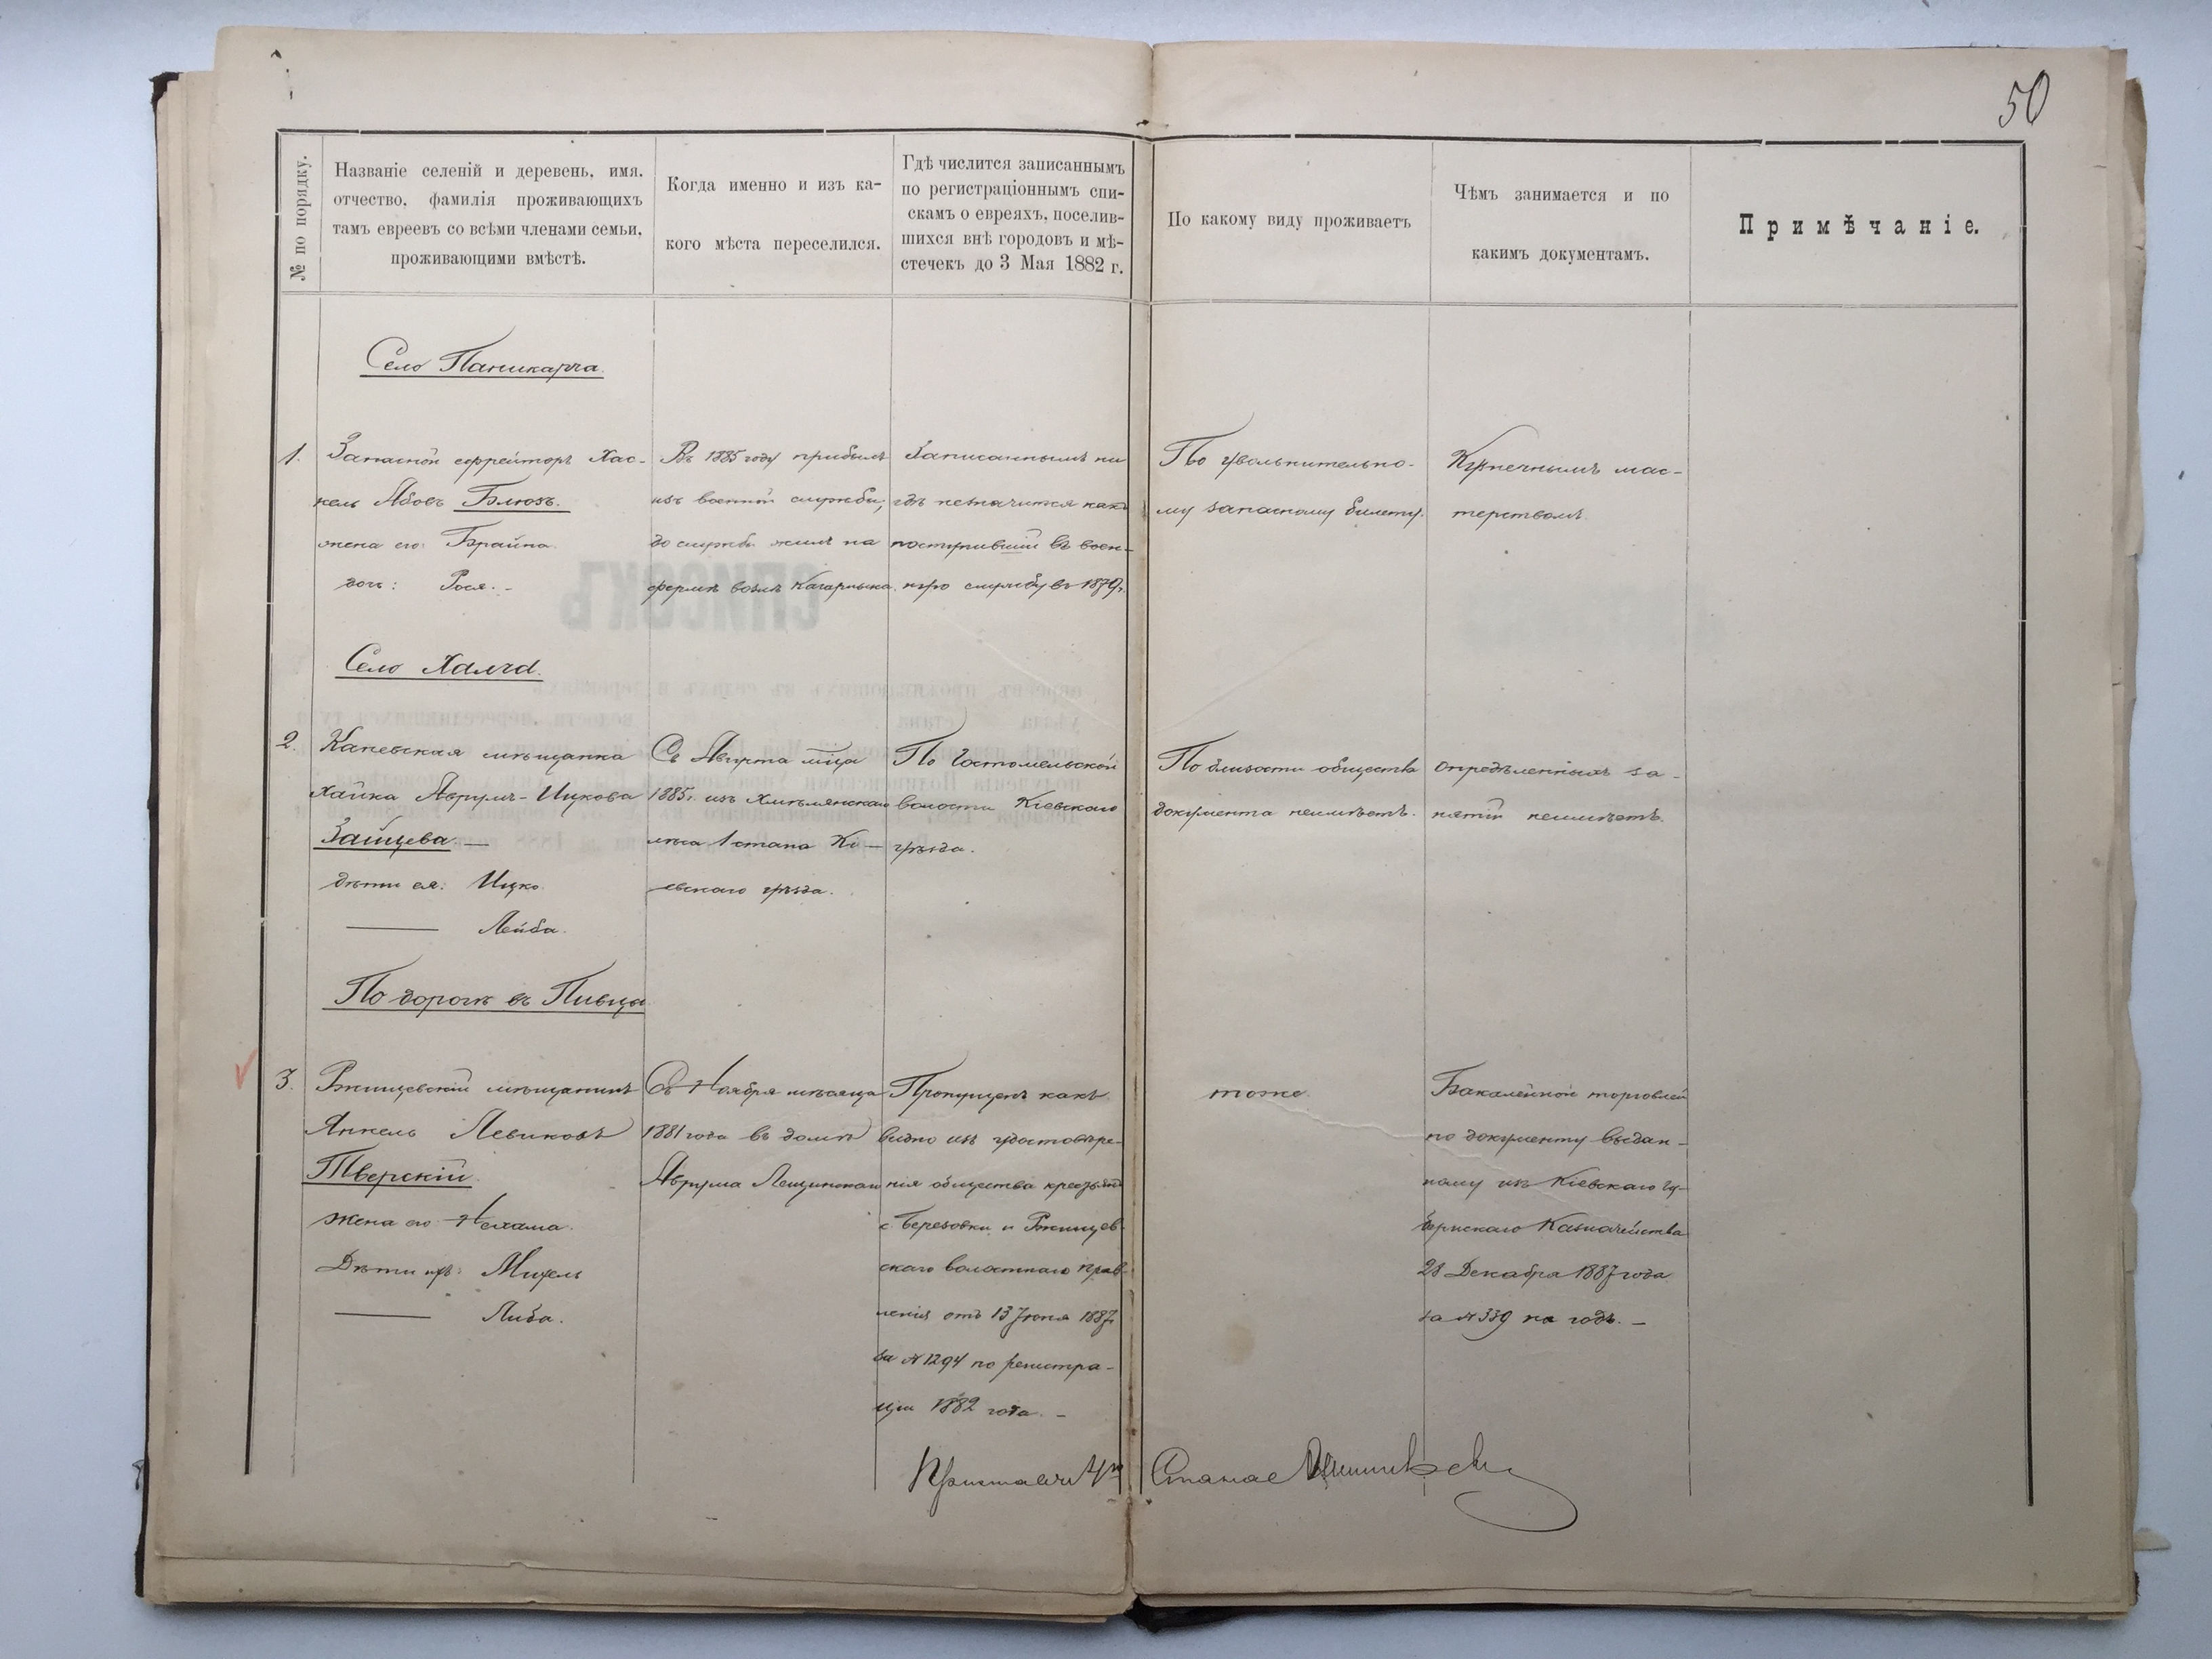 50
№ по порядку.
Названіе селеній и деревень, имя,
отчество, фамилія проживающихъ
тамъ евреевъ со всѣми членами семьи,
проживающими вмѣстѣ.
Когда именно и изъ ка-
кого мѣста переселился.
Гдѣ числится записаннымъ
по регистраціоннымъ спи-
скамъ о евреяхъ, поселив-
шихся внѣ городовъ и мѣ-
стечекъ до 3 Мая 1882 г.
По какому виду проживаетъ
Чѣмъ занимается и по
какимъ документамъ.
Примѣчаніе.
Село Паникарча.
1.
Запасной ефрейторъ Хас-
кель Абовъ Блюзъ.
жена его: Брайна
дочь: Рося. -
Въ 1885 году прибылъ
изъ военной службы,
до службы жилъ на
фермѣ возлѣ Кагарлыка.
Записаннымъ ни
гдѣ незначится какъ
поступившій въ воен-
ную службу въ 1879г.
По увольнительно-
му запасному билету.
Кузнечнымъ мас-
терствомъ.
Село Халча.
2.
Каневская мѣщанка
Хайка Аврумъ-Ицкова
Зайцева —
дѣти ея: Ицко.
— Лейба.
Съ Августа мѣца
1885г. изъ Хмѣлянскаго
лѣса 1 стана Кі-
евскаго уѣзда.
По Гостомельской
волости Кіевскаго
уѣзда.
По близости общества
документа неимѣетъ.
Опредѣленныхъ за-
нятій неимѣетъ.
По дорогѣ въ Пивцы
3.
Ржищевскій мѣщанинъ
Янкель Левиковъ
Тверскій
жена его Нехама.
Дѣти ихъ: Михель
— Либа.
Съ Ноября мѣсяца
1881 года въ домѣ
Аврума Лещинскаго
Пропущенъ какъ
видно изъ удостовѣре-
нія общества крестьянъ
с. Березовки и Ржищев-
скаго волостнаго прав-
ленія отъ 13 Іюня 1887
за № 1294 по регистра-
ціи 1882 года. -
тоже.
Бакалейной торговлей
по документу выдан-
ному изъ Кіевскаго Гу-
бернскаго Казначейства
28 Декабря 1887 года
за № 339 на годъ. -
Приставъ 4го Стана